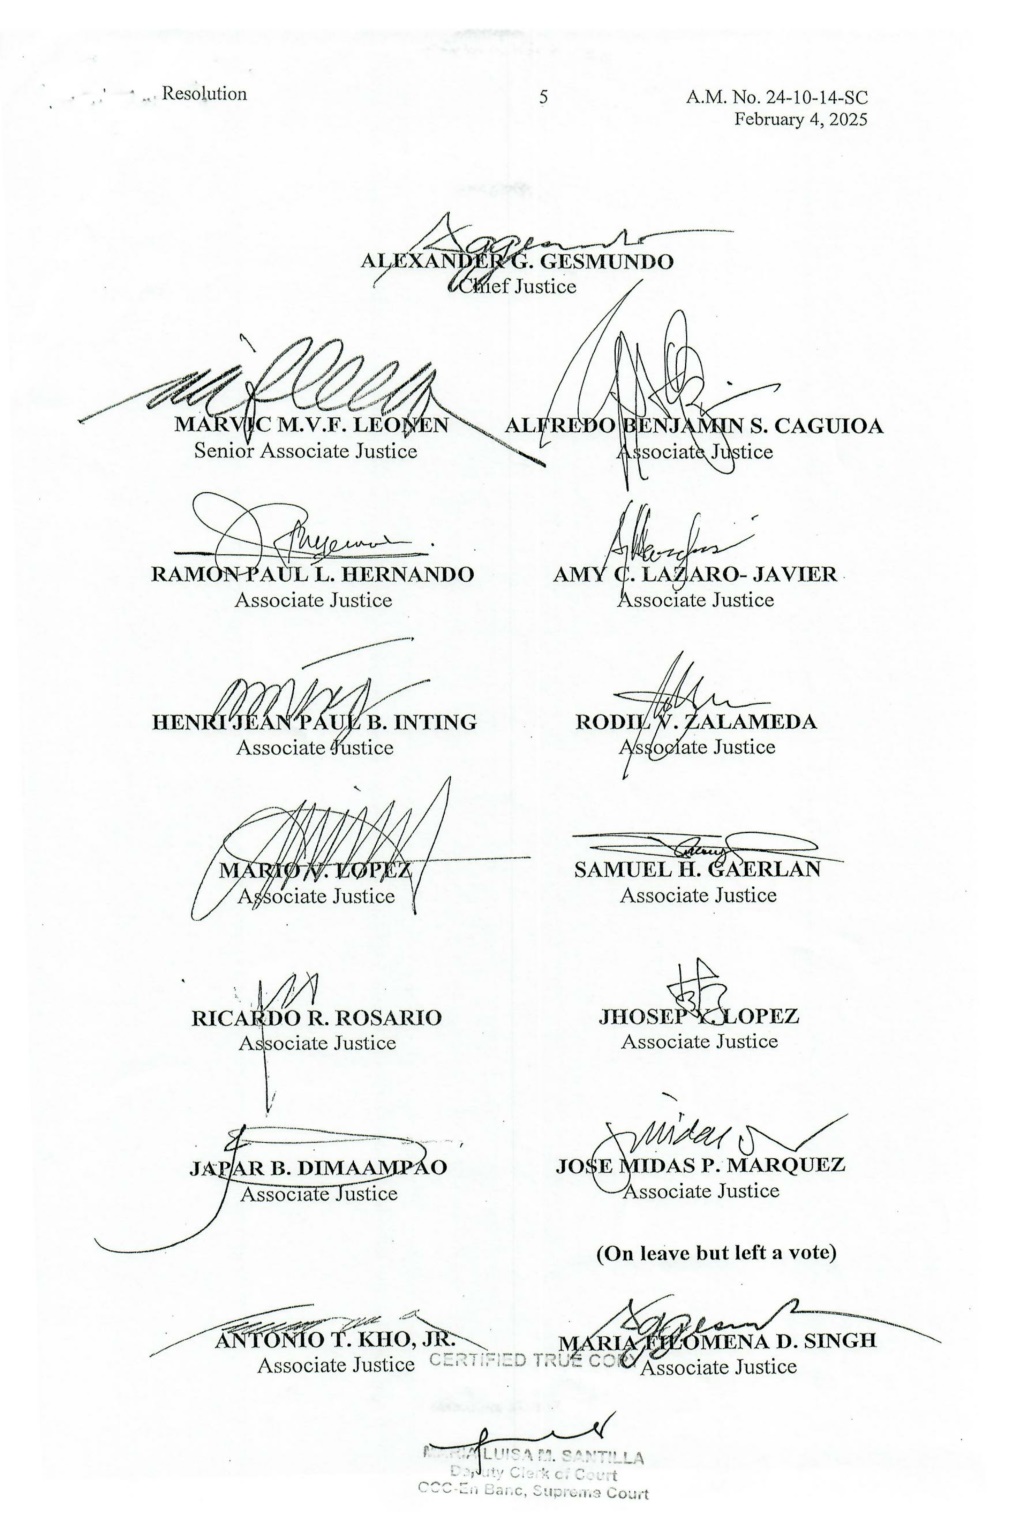 Resolution
5
A.M. No. 24-10-14-SC
February 4, 2025
ALEXANDER G. GESMUNDO
Chief Justice
MARVIC M.V.F. LEONEN
Senior Associate Justice
ALFREDO BENJAMIN S. CAGUIOA
Associate Justice
RAMON PAUL L. HERNANDO
Associate Justice
AMY C. LAZARO- JAVIER
Associate Justice
HENRI JEAN PAUL B. INTING
Associate Justice
RODIL V. ZALAMEDA
Associate Justice
MARIO V. LOPEZ
Associate Justice
SAMUEL H. GAERLAN
Associate Justice
RICARDO R. ROSARIO
Associate Justice
JHOSEP Y. LOPEZ
Associate Justice
JAPAR B. DIMAAMPAO
Associate Justice
JOSE MIDAS P. MARQUEZ
Associate Justice
(On leave but left a vote)
ANTONIO T. KHO, JR.
Associate Justice
MARIA FILOMENA D. SINGH
Associate Justice
CERTIFIED TRUE COPY
LUISA M. SANTILLA
Deputy Clerk of Court
CCC-En Banc, Supreme Court